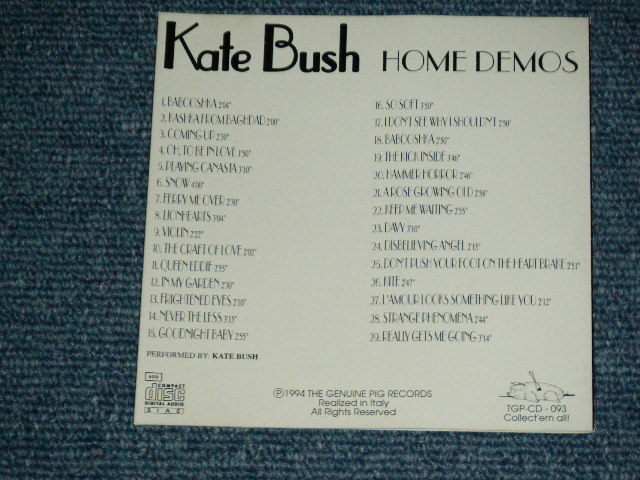 Kate Bush HOME DEMOS
1. BABOOSHKA 2'04"
2. KASHKA FROM BAGHDAD 2'00"
3. COMING UP 2'30"
4. OH, TO BE IN LOVE 1'50"
5. PLAYING CANASTA 3'10"
6. SNOW 4'00"
7. FERRY ME OVER 2'30"
8. LIONHEARTS 3'04"
9. VIOLIN 2'22"
10. THE CRAFT OF LOVE 2'02"
11. QUEEN EDDIE 3'55"
12. IN MY GARDEN 2'30"
13. FRIGHTENED EYES 2'10"
14. NEVER THE LESS 3'15"
15. GOODNIGHT BABY 2'55"
16. SO SOFT 3'50"
17. I DON'T SEE WHY I SHOULDN'T 2'50"
18. BABOOSHKA 2'50"
19. THE KICK INSIDE 3'46"
20. HAMMER HORROR 2'46"
21. A ROSE GROWING OLD 2'58"
22. KEEP ME WAITING 2'55"
23. DAVY 3'10"
24. DISBELIEVING ANGEL 2'15"
25. DON'T PUSH YOUR FOOT ON THE HEART BRAKE 2'51"
26. KITE 2'47"
27. L'AMOUR LOOKS SOMETHING LIKE YOU 2'12"
28. STRANGE PHENOMENA 2'44"
29. REALLY GETS ME GOING 3'14"
PERFORMED BY: KATE BUSH
ADD
COMPACT
disc
DIGITAL AUDIO
S I A E
Ⓟ1994 THE GENUINE PIG RECORDS
Realized in Italy
All Rights Reserved
TGP-CD - 093
Collect'em all!